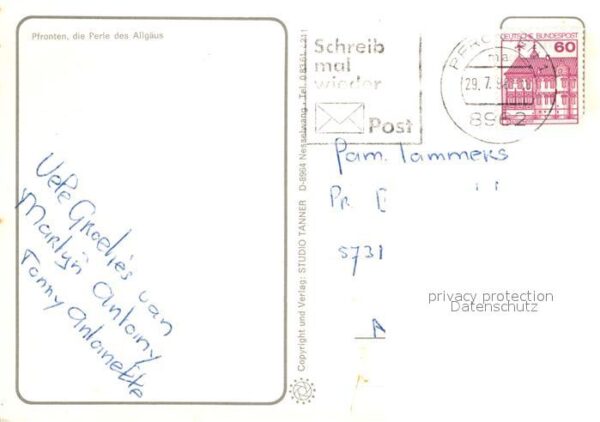 Pfronten, die Perle des Allgäus
Vele Groetjes van
Martijn Antoiny
Tonny Antoinette
Copyright und Verlag: STUDIO TANNER D-8964 Nesselwang · Tel. 0 83 61
Schreib
mal
wieder
Post
29.7.
8962
DEUTSCHE BUNDESPOST
60
Fam. Tammers
Pr
5731
privacy protection
Datenschutz